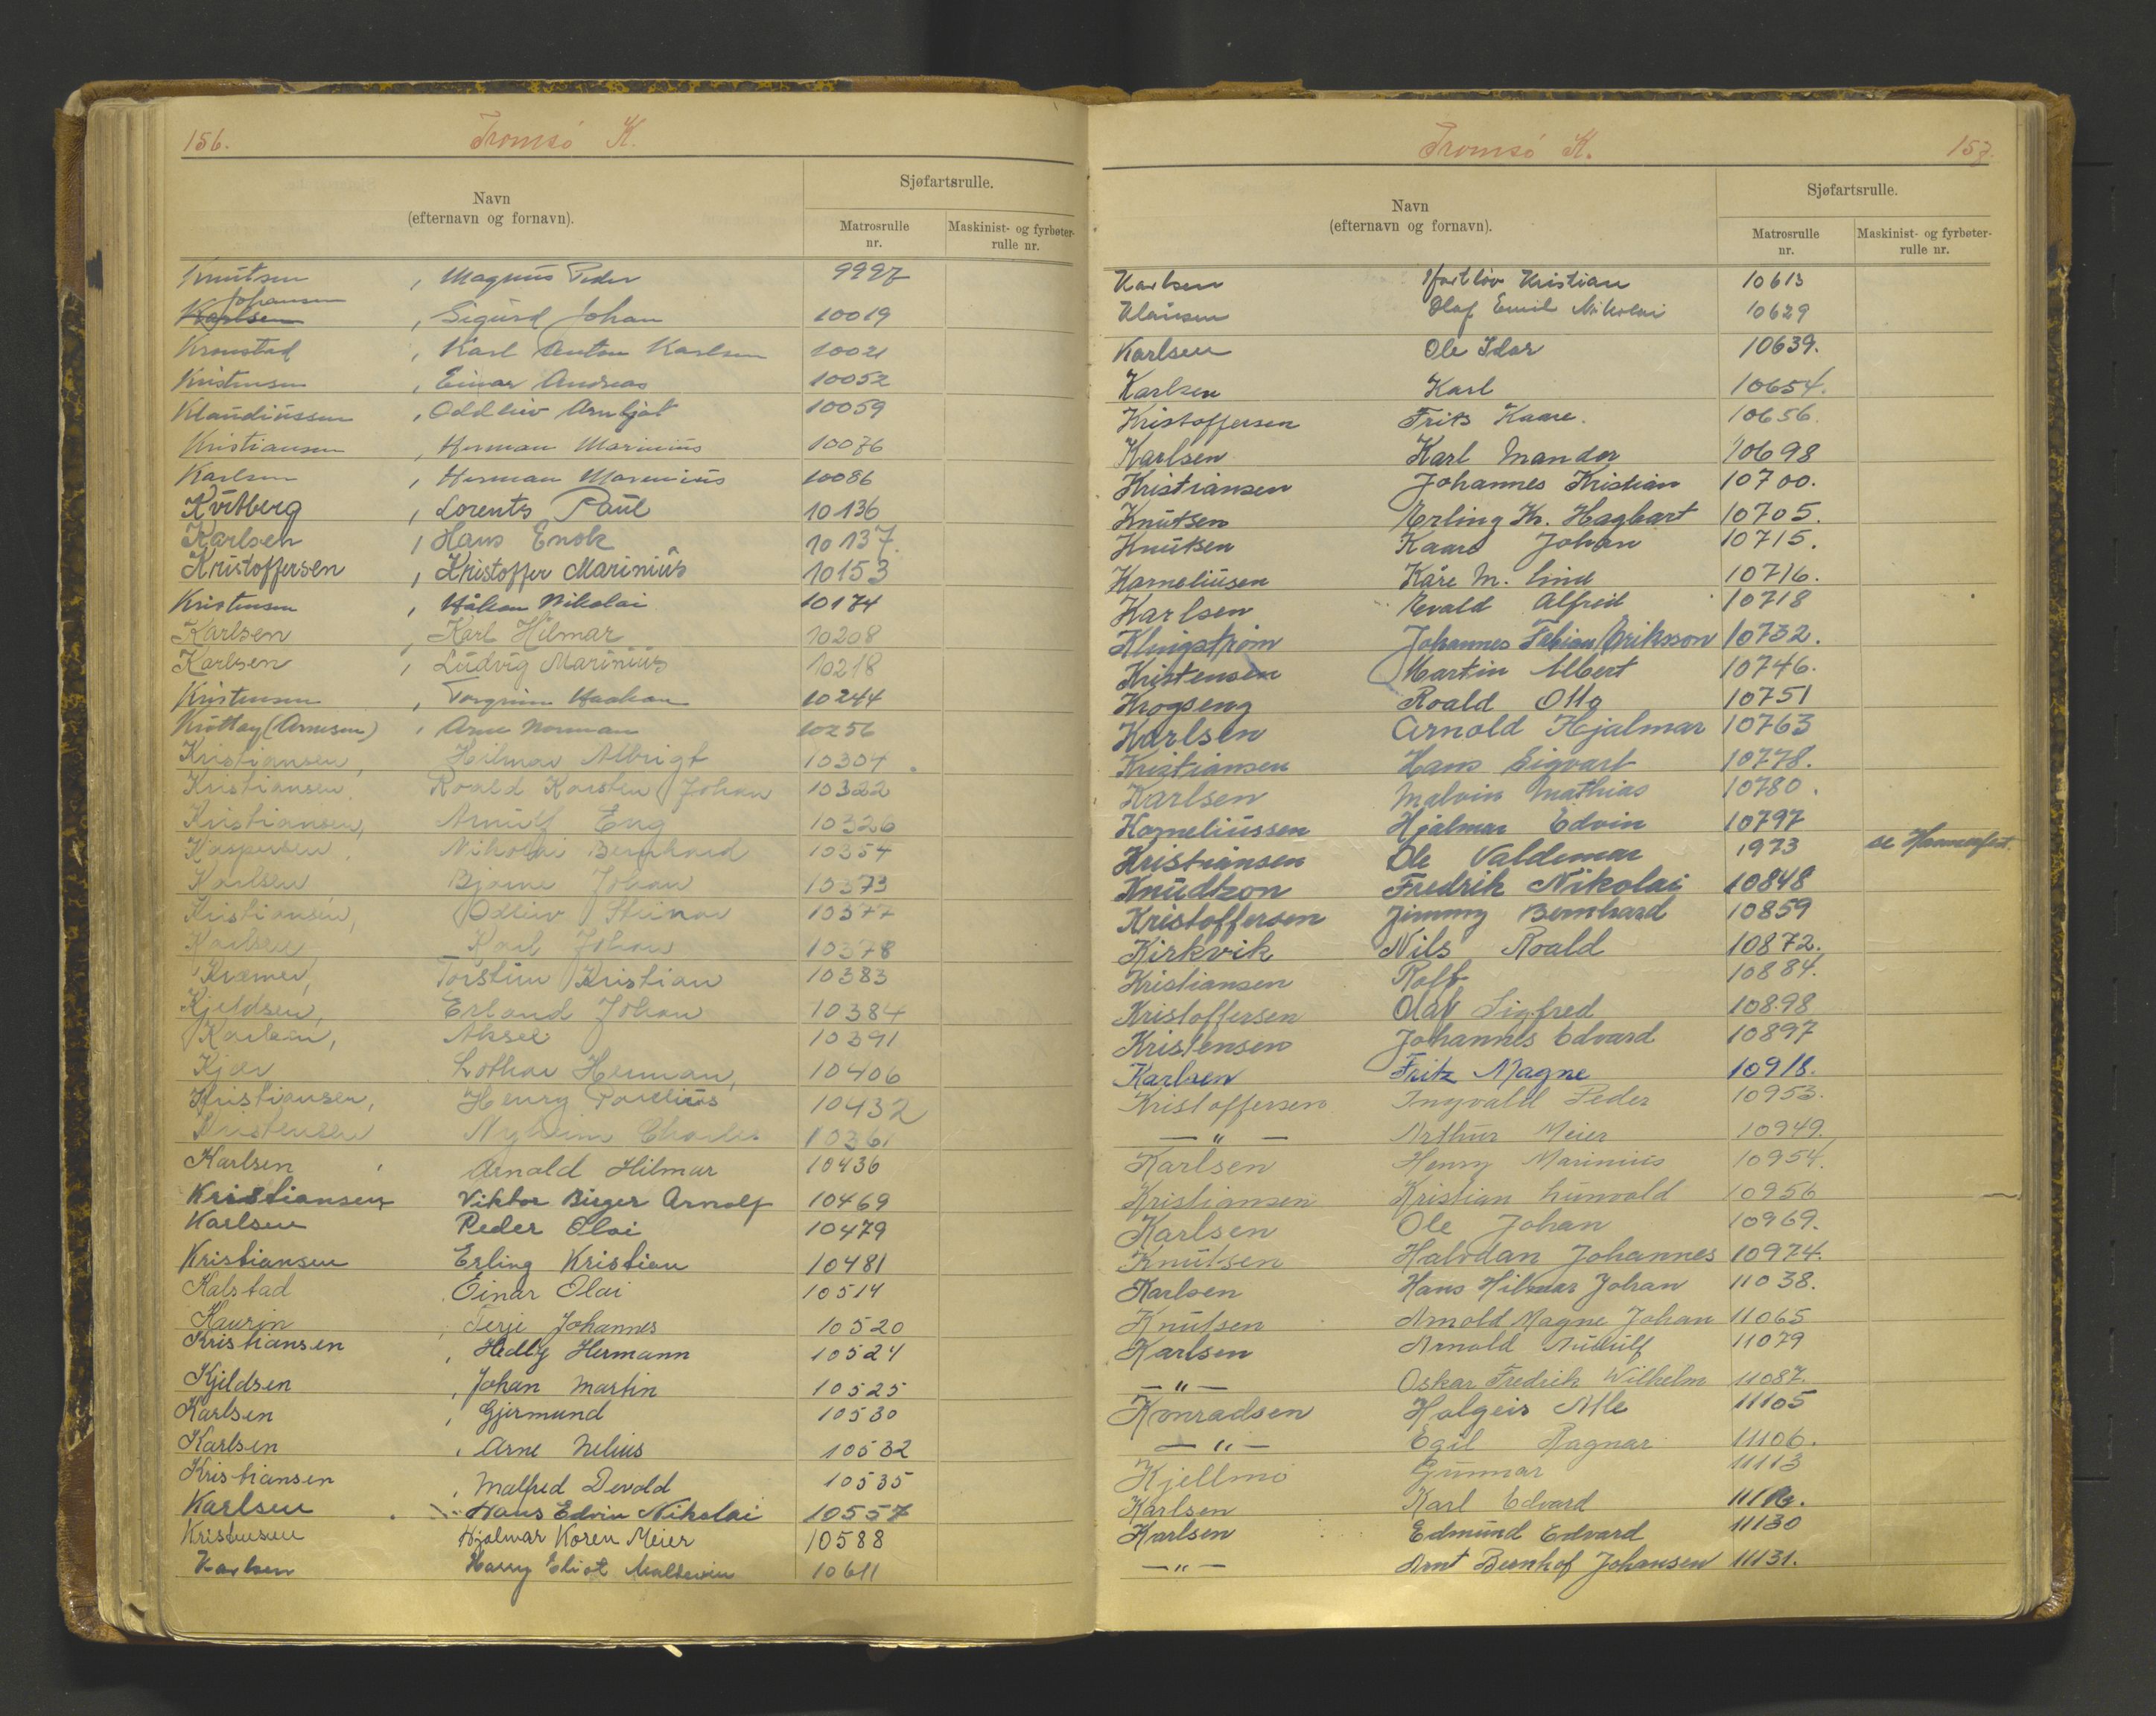 156. Tromsø K.
Navn
(efternavn og fornavn).
Sjøfartsrulle.
Matrosrulle
nr.
Maskinist- og fyrbøter-
rulle nr.
Knutsen , Magnus Peder 9997
Johansen
Karlsen , Sigurd Johan 10019
Kronstad , Karl Anton Karlsen 10021
Kristensen , Einar Andreas 10052
Klaudiussen , Oddleiv Arnljot 10059
Kristiansen , Herman Marinius 10076
Karlsen , Herman Marenius 10086
Kvitberg , Lorents Paul 10136
Karlsen , Hans Enok 10137.
Kristoffersen , Kristoffer Marinius 10153
Kristensen , Håkon Nikolai 10174
Karlsen , Karl Hilmar 10208
Karlsen , Ludvig Marinius 10218
Kristensen , Torgrim Haakon 10244
(Arnesen) , Arne Norman 10256
Kristiansen, Hilmar Albrigt 10304
Kristiansen, Roald Karsten Johan 10322
Kristiansen, Arnulf Eng 10326
Kaspersen, Nikolai Bernhard 10354
Karlsen Bjarne Johan 10373
Kristiansen, Odleiv Steinar 10377
Karlsen Karl Johan 10378
Kræmer, Torstein Kristian 10383
Kjeldsen, Erland Johan 10384
Karlsen, Aksel 10391
Kjær Lothar Herman, 10406
Kristiansen, Henry Paulius 10432
Kristensen Charles 10361
Karlsen , Arnold Hilmar 10436
Kristiansen Viktor Birger Arnolf 10469
Karlsen Peder Olai 10479
Kristiansen Erling Kristian 10481
Kalstad Einar Olai 10514
Kaurin , Terje Johannes 10520
Kristiansen , Hedly Hermann 10524
Kjeldsen , Johan Martin 10525
Karlsen , Gjermund 10530
Karlsen , Arne Nelius 10532
Kristiansen , Malfred Devold 10535
Karlsen Hans Edvin Nikolai 10557
Kristensen Hjalmar Koren Meier 10588
Karlsen Harry Eliot 10611
Tromsø K. 157.
Navn
(efternavn og fornavn).
Sjøfartsrulle.
Matrosrulle
nr.
Maskinist- og fyrbøter-
rulle nr.
Karlsen Hartløv Kristian 10613
Klausen Olaf Emil Nikolai 10629
Karlsen Ole Idar 10639.
Karlsen Karl 10654.
Kristoffersen Frits Kaare. 10656.
Karlsen Karl Mandor 10698
Kristiansen Johannes Kristian 10700.
Knutsen Erling Kr. Hagbart 10705.
Knutsen Kaare Johan 10715.
Korneliusen Kåre M. Lind 10716.
Karlsen Evald Alfred 10718
Klingstrøm Johannes Fabian Eriksson 10732.
Kristensen Martin Albert 10746.
Krogseng Roald Otto 10751
Karlsen Arnold Hjalmar 10763
Kristiansen Hans Sigvart 10778.
Karlsen Malvin Mathias 10780.
Korneliussen Hjalmar Edvin 10797
Kristiansen Ole Valdemar 1973 se Hammerfest.
Knudtzon Fredrik Nikolai 10848
Kristoffersen Jimmy Bernhard 10859
Kirkvik Nils Roald 10872.
Kristiansen Rolf 10884.
Kristoffersen Olaf Sigfred 10898
Kristensen Johannes Edvard 10897
Karlsen Fritz Magne 10918.
Kristoffersen Ingvald Peder 10953.
— " — Arthur Meier 10949.
Karlsen Henry Marinius 10954.
Kristiansen Kristian Lunvold 10956
Karlsen Ole Johan 10969.
Knutsen Halvdan Johannes 10974.
Karlsen Hans Hilmar Johan 11038.
Knutsen Arnold Magne Johan 11065
Karlsen Arnold 11079
— " — Oskar Fredrik Wilhelm 11087.
Konradsen Holgeir Atle 11105
— " — Egil Ragnar 11106.
Kjellmo Gunnar 11113
Karlsen Karl Edvard
Karlsen Edmund Edvard 11130
— " — Arnt Johansen 11131.